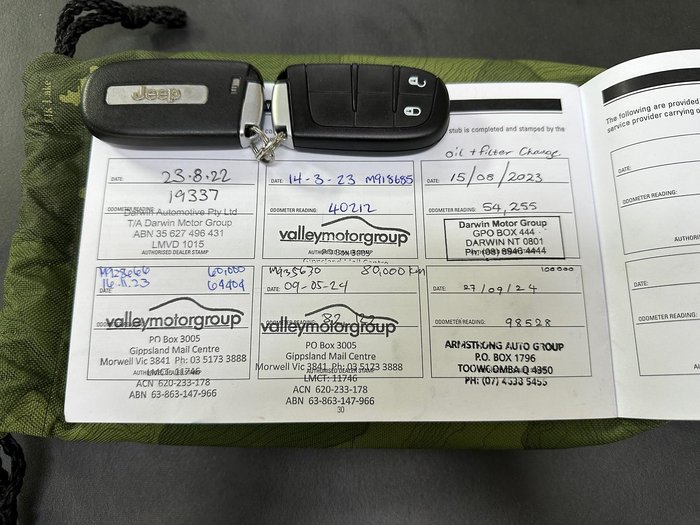 Jeep
The following are provided
service provider carrying o
stub is completed and stamped by the
oil + filter Change
DATE: 23.8.22
19337
ODOMETER READING:
Darwin Automotive Pty Ltd
T/A Darwin Motor Group
ABN 35 627 496 431
LMVD 1015
AUTHORISED DEALER STAMP
DATE: 14-3-23 M918685
ODOMETER READING: 40212
valleymotorgroup
PO Box 3005
DATE: 15/08/2023
ODOMETER READING: 54,255
Darwin Motor Group
GPO BOX 444
DARWIN NT 0801
Ph: (08) 8946 4444
M928666 60,000
DATE: 16.11.23 64404
ODOMETER READING:
valleymotorgroup
PO Box 3005
Gippsland Mail Centre
Morwell Vic 3841 Ph: 03 5173 3888
LMCT: 11746
ACN 620-233-178
ABN 63-863-147-966
M935670 80,000 km
DATE: 09-05-24
ODOMETER READING:
valleymotorgroup
PO Box 3005
Gippsland Mail Centre
Morwell Vic 3841 Ph: 03 5173 3888
AUTHORISED DEALER STAMP
LMCT: 11746
ACN 620-233-178
ABN 63-863-147-966
100000
DATE: 27/09/24
ODOMETER READING: 98528
ARMSTRONG AUTO GROUP
P.O. BOX 1796
TOOWOOMBA Q 4350
PH: (07) 4633 5455
30